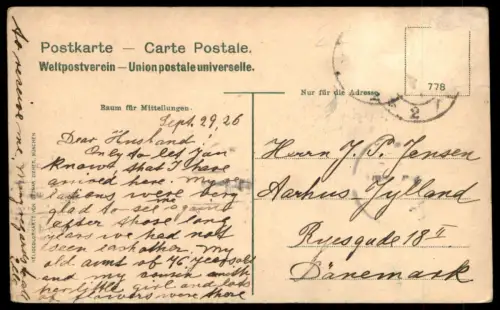 Postkarte — Carte Postale.
Weltpostverein — Union postale universelle.
Nur für die Adresse
778
2
Raum für Mitteilungen.
Sept. 29, 26
Dear Husband
Only to let you
know, that I have
arived here. My re
lations were very
glad to see me
after those long
years we had not
seen eachother. My
old aunt of 76 years old
and my cousin with
her little girl and lots
of flowers were there
Herrn J. P. Jensen
Aarhus Jylland
Ryesgade 18 II
Dänemark